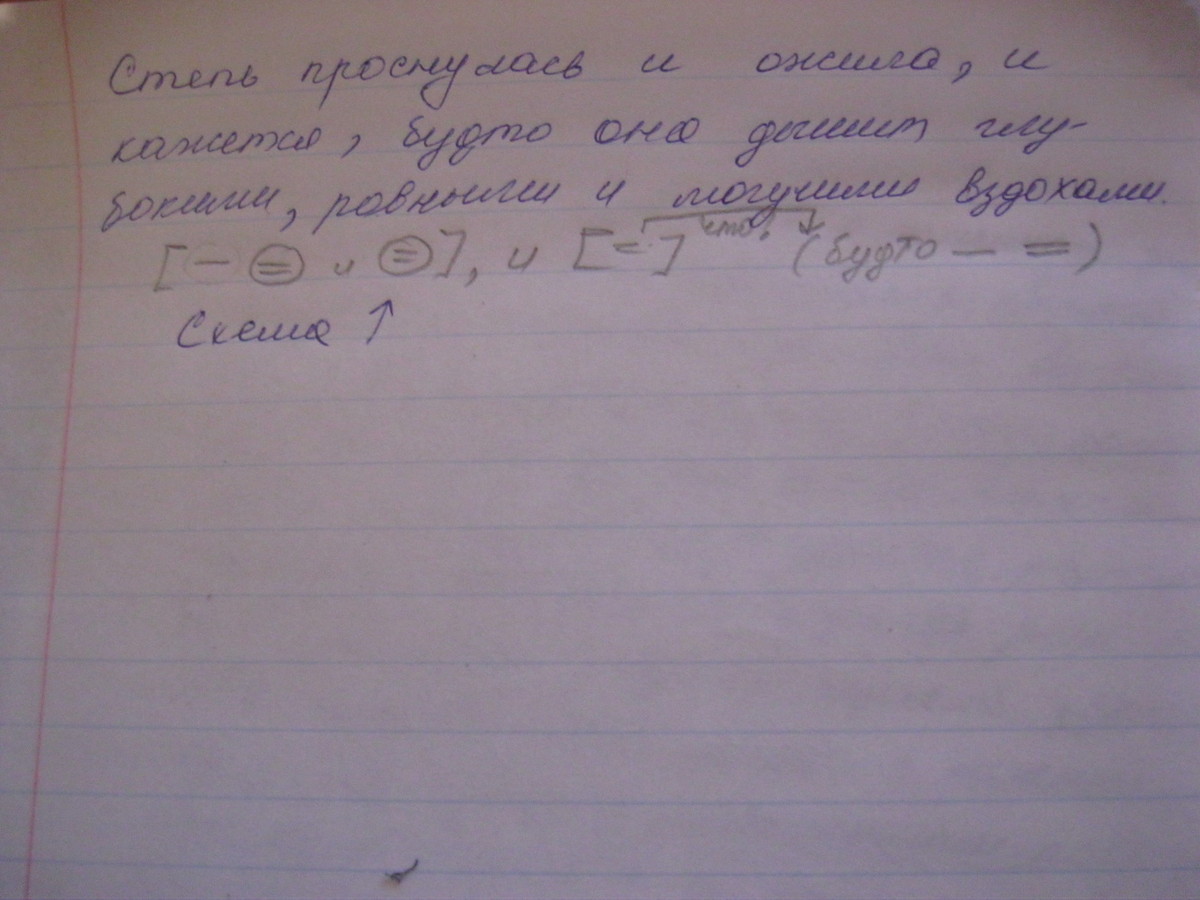 Степь проснулась и ожила, и
кажется, будто она дышит глу-
бокими, ровными и могучими вздохами.
[— = и =], и [=] что? (будто — =)
Схема ↑